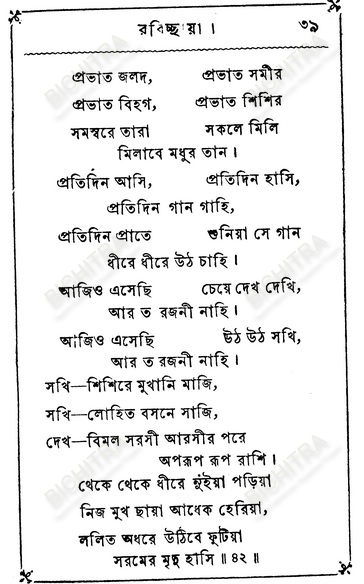 রবিচ্ছায়া । ৩৯
প্রভাত জলদ, প্রভাত সমীর
প্রভাত বিহগ, প্রভাত শিশির
সমস্বরে তারা সকলে মিলি
মিলাবে মধুর তান ।
প্রতিদিন আসি, প্রতিদিন হাসি,
প্রতিদিন গান গাহি,
প্রতিদিন প্রাতে শুনিয়া সে গান
ধীরে ধীরে উঠ চাহি ।
আজিও এসেছি চেয়ে দেখ দেখি,
আর ত রজনী নাহি ।
আজিও এসেছি উঠ উঠ সখি,
আর ত রজনী নাহি ।
সখি—শিশিরে মুখানি মাজি,
সখি—লোহিত বসনে সাজি,
দেখ—বিমল সরসী আরসীর পরে
অপরূপ রূপ রাশি ।
থেকে থেকে ধীরে নুঁইয়া পড়িয়া
নিজ মুখ ছায়া আধেক হেরিয়া,
ললিত অধরে উঠিবে ফুটিয়া
সরমের মৃদু হাসি ॥ ৪২ ॥
BICHITRA